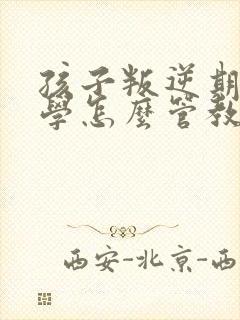 孩子叛逆期
學怎麼管教
西安-北京-西